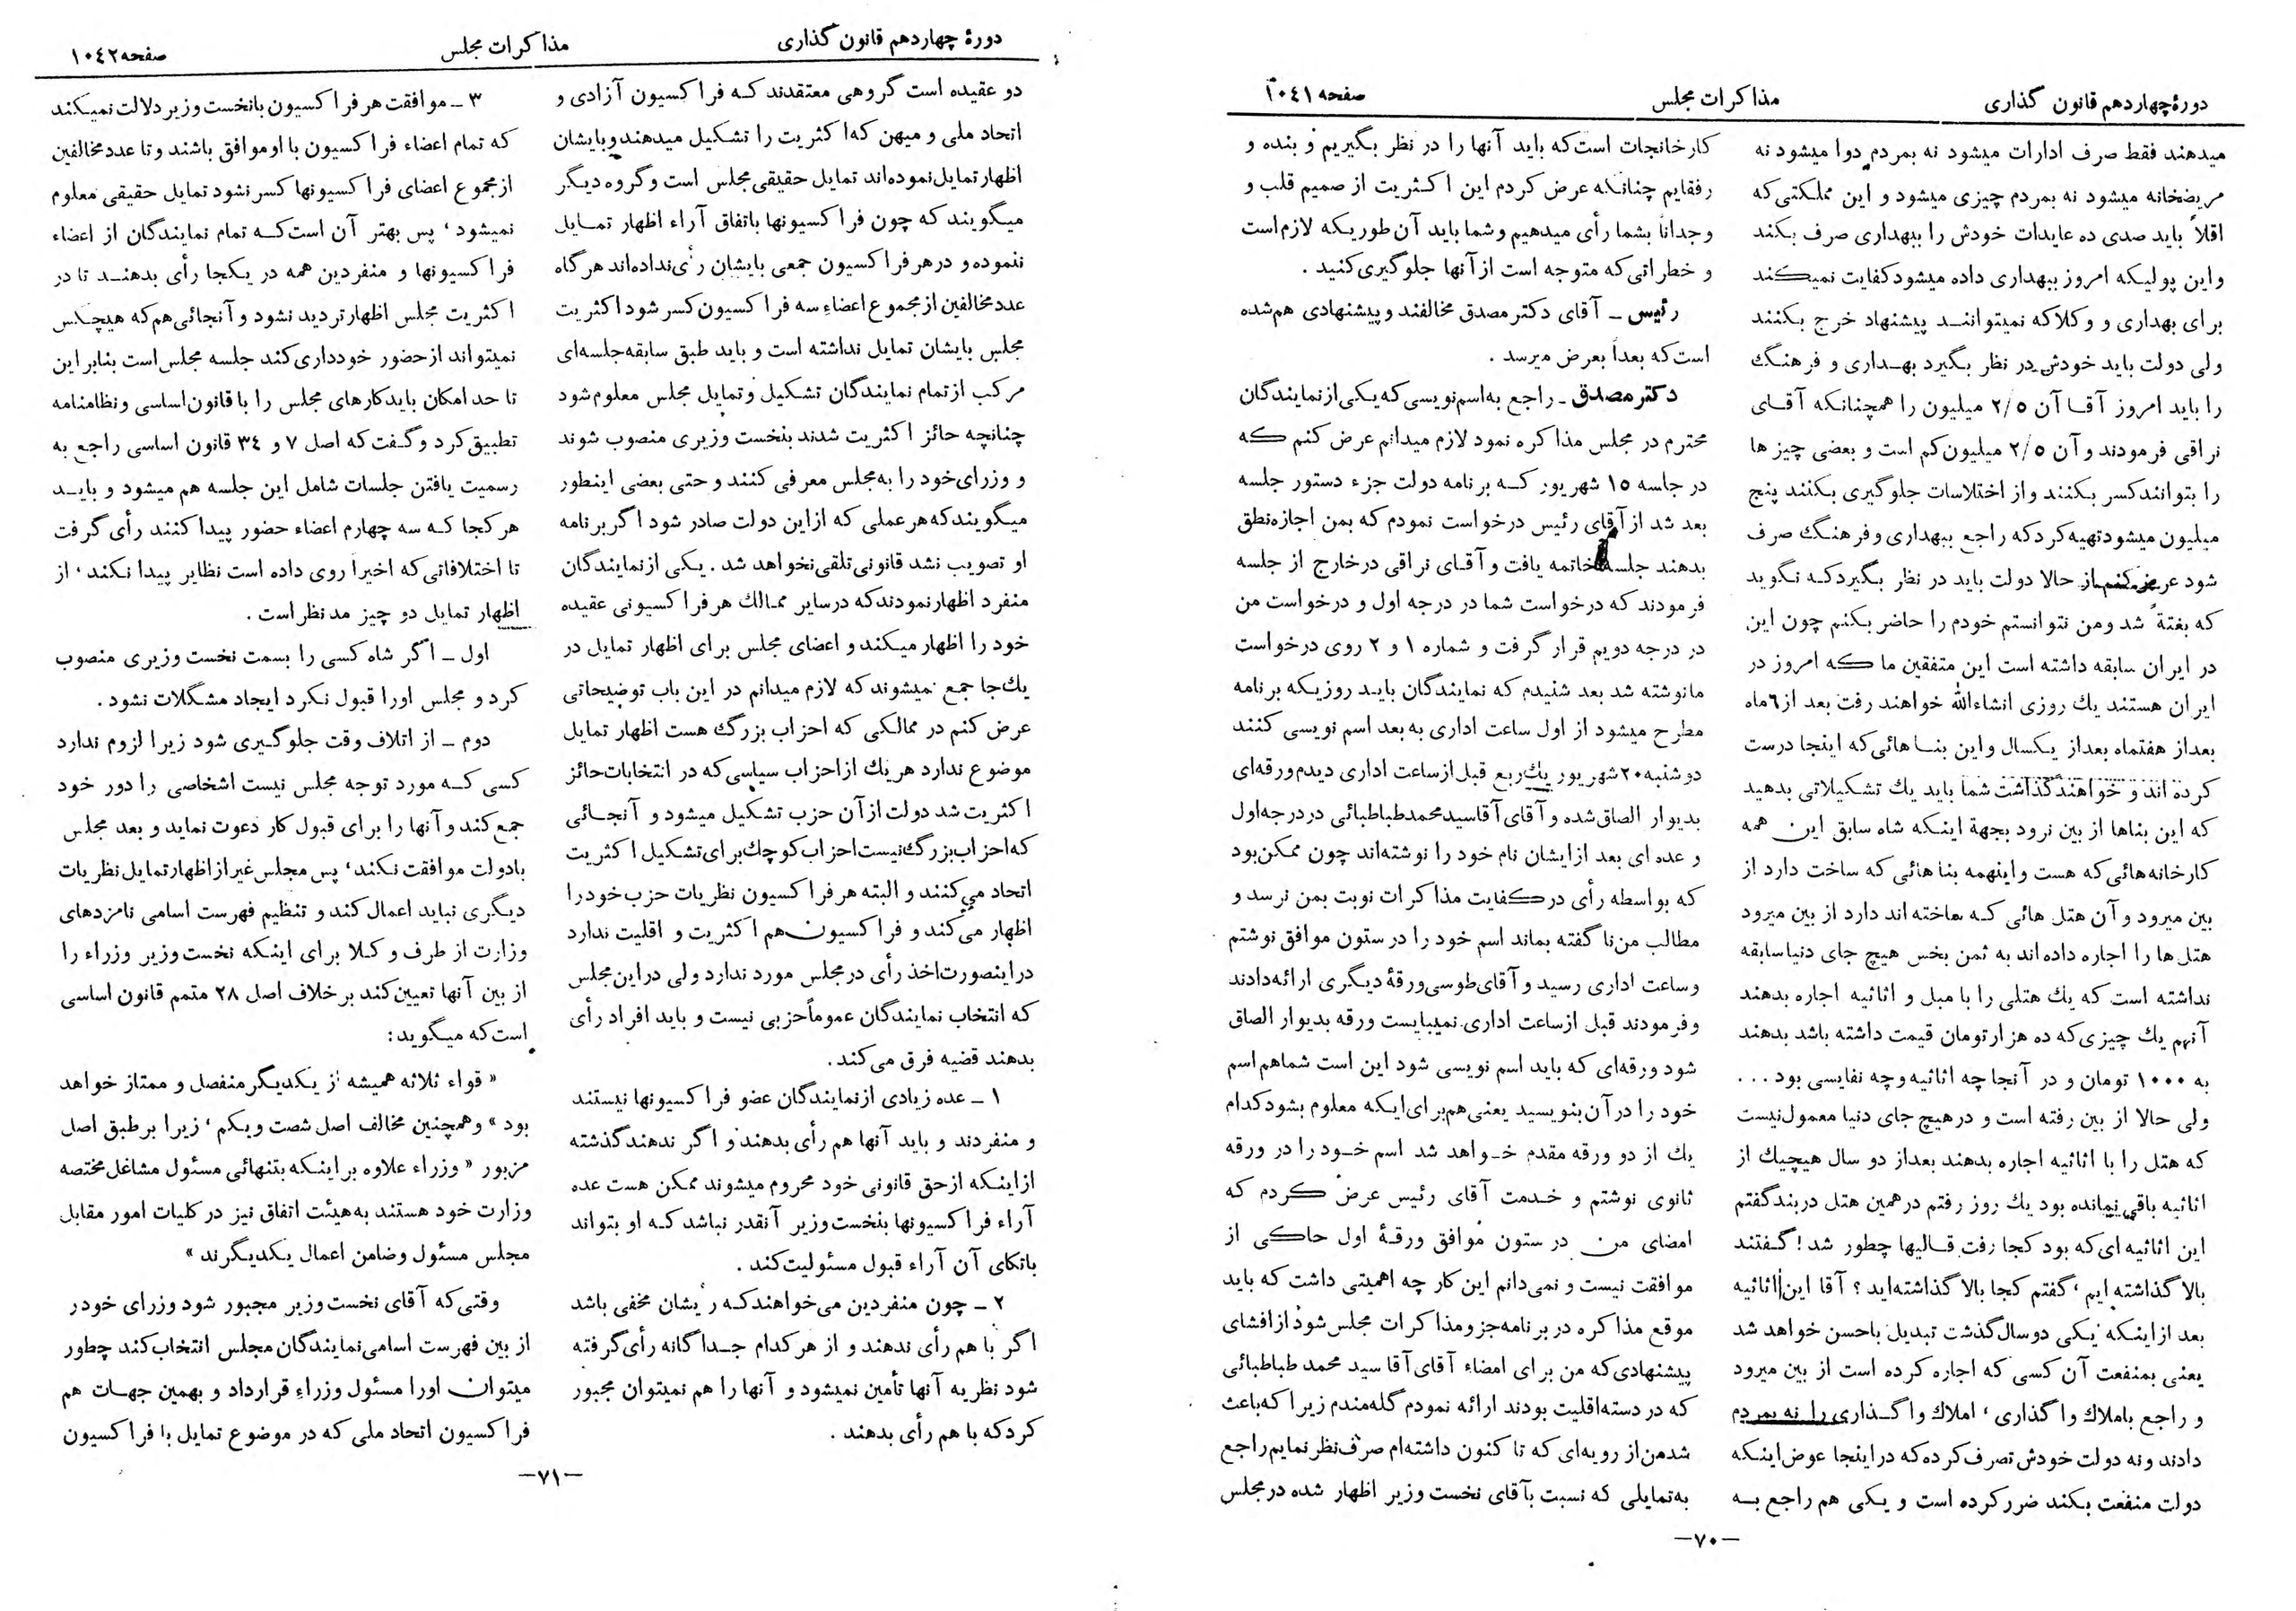 دورهٔ چهاردهم قانون گذاری
مذاکرات مجلس
صفحه ۱۰۴۱
میدهند فقط صرف ادارات میشود نه بمردم دوا میشود نه
مریضخانه میشود نه بمردم چیزی میشود و این مملکتی که
اقلاً باید صدی ده عایدات خودش را ببهداری صرف بکند
واین پولیکه امروز ببهداری داده میشود کفایت نمیکند
برای بهداری و وکلا که نمیتوانند پیشنهاد خرج بکنند
ولی دولت باید خودش در نظر بگیرد بهداری و فرهنگ
را باید امروز آقا آن ۲/۵ میلیون را همچنانکه آقای
نراقی فرمودند و آن ۲/۵ میلیون کم است و بعضی چیز ها
را بتوانند کسر بکنند و از اختلاسات جلوگیری بکنند پنج
میلیون میشود تهیه کرد که راجع ببهداری و فرهنگ صرف
شود عرض کنم از حالا دولت باید در نظر بگیرد که نگوید
که بغتةً شد ومن نتوانستم خودم را حاضر بکنم چون این
در ایران سابقه داشته است این متفقین ما که امروز در
ایران هستند یك روزی انشاءالله خواهند رفت بعد از ۶ ماه
بعداز هفتماه بعداز یکسال واین بناهائی که اینجا درست
کرده اند و خواهند گذاشت شما باید یك تشکیلاتی بدهید
که این بناها از بین نرود بجهة اینکه شاه سابق این همه
کارخانه هائی که هست و اینهمه بناهائی که ساخت دارد از
بین میرود و آن هتل هائی که ساخته اند دارد از بین میرود
هتل ها را اجاره داده اند به ثمن بخس هیچ جای دنیا سابقه
نداشته است که یك هتلی را با مبل و اثاثیه اجاره بدهند
آنهم یك چیزی که ده هزار تومان قیمت داشته باشد بدهند
به ۱۰۰۰ تومان و در آنجا چه اثاثیه وچه نفایسی بود ...
ولی حالا از بین رفته است و در هیچ جای دنیا معمول نیست
که هتل را با اثاثیه اجاره بدهند بعداز دو سال هیچیك از
اثاثیه باقی نمانده بود یك روز رفتم در همین هتل دربند گفتم
این اثاثیه ای که بود کجا رفت قالیها چطور شد! گفتند
بالا گذاشته ایم، گفتم کجا بالا گذاشته اید؟ آقا این اثاثیه
بعد ازاینکه یکی دوسال گذشت تبدیل باحسن خواهد شد
یعنی بمنفعت آن کسی که اجاره کرده است از بین میرود
و راجع باملاك واگذاری، املاك واگذاری را نه بمردم
دادند و نه دولت خودش تصرف کرده که در اینجا عوض اینکه
دولت منفعت بکند ضرر کرده است و یکی هم راجع به
کارخانجات است که باید آنها را در نظر بگیریم و بنده و
رفقایم چنانکه عرض کردم این اکثریت از صمیم قلب و
وجداناً بشما رأی میدهیم وشما باید آن طوریکه لازم است
و خطراتی که متوجه است از آنها جلوگیری کنید .
رئیس ـ آقای دکتر مصدق مخالفند و پیشنهادی هم شده
است که بعداً بعرض میرسد .
دکتر مصدق ـ راجع به اسم نویسی که یکی از نمایندگان
محترم در مجلس مذاکره نمود لازم میدانم عرض کنم که
در جلسه ۱۵ شهریور که برنامه دولت جزء دستور جلسه
بعد شد از آقای رئیس درخواست نمودم که بمن اجازه نطق
بدهند جلسه خاتمه یافت و آقای نراقی در خارج از جلسه
فرمودند که درخواست شما در درجه اول و درخواست من
در درجه دویم قرار گرفت و شماره ۱ و ۲ روی درخواست
ما نوشته شد بعد شنیدم که نمایندگان باید روزیکه برنامه
مطرح میشود از اول ساعت اداری به بعد اسم نویسی کنند
دوشنبه ۲۰ شهریور یك ربع قبل از ساعت اداری دیدم ورقه ای
بدیوار الصاق شده و آقای آقا سید محمد طباطبائی در درجه اول
و عده ای بعد از ایشان نام خود را نوشته اند چون ممکن بود
که بواسطه رأی در کفایت مذاکرات نوبت بمن نرسد و
مطالب من ناگفته بماند اسم خود را در ستون موافق نوشتم
و ساعت اداری رسید و آقای طوسی ورقهٔ دیگری ارائه دادند
و فرمودند قبل از ساعت اداری نمیبایست ورقه بدیوار الصاق
شود ورقه ای که باید اسم نویسی شود این است شما هم اسم
خود را در آن بنویسید یعنی هم برای اینکه معلوم بشود کدام
یك از دو ورقه مقدم خواهد شد اسم خود را در ورقه
ثانوی نوشتم و خدمت آقای رئیس عرض کردم که
امضای من در ستون موافق ورقهٔ اول حاکی از
موافقت نیست و نمی دانم این کار چه اهمیتی داشت که باید
موقع مذاکره در برنامه جزو مذاکرات مجلس شود از افشای
پیشنهادی که من برای امضاء آقای آقا سید محمد طباطبائی
که در دسته اقلیت بودند ارائه نمودم گله مندم زیرا که باعث
شد من از رویه ای که تا کنون داشته ام صرف نظر نمایم راجع
به تمایلی که نسبت بآقای نخست وزیر اظهار شده در مجلس
ـ۷۰ـ
دورهٔ چهاردهم قانون گذاری
مذاکرات مجلس
صفحه ۱۰۴۲
دو عقیده است گروهی معتقدند که فراکسیون آزادی و
اتحاد ملی و میهن که اکثریت را تشکیل میدهند و بایشان
اظهار تمایل نموده اند تمایل حقیقی مجلس است و گروه دیگر
میگویند که چون فراکسیونها باتفاق آراء اظهار تمایل
ننموده و در هر فراکسیون جمعی بایشان رأی نداده اند هر گاه
عدد مخالفین از مجموع اعضاء سه فراکسیون کسر شود اکثریت
مجلس بایشان تمایل نداشته است و باید طبق سابقه جلسه ای
مرکب از تمام نمایندگان تشکیل و تمایل مجلس معلوم شود
چنانچه حائز اکثریت شدند بنخست وزیری منصوب شوند
و وزرای خود را به مجلس معرفی کنند و حتی بعضی اینطور
میگویند که هر عملی که از این دولت صادر شود اگر برنامه
او تصویب نشد قانونی تلقی نخواهد شد . یکی از نمایندگان
منفرد اظهار نمودند که در سایر ممالك هر فراکسیونی عقیده
خود را اظهار میکند و اعضای مجلس برای اظهار تمایل در
یك جا جمع نمیشوند که لازم میدانم در این باب توضیحاتی
عرض کنم در ممالکی که احزاب بزرگ هست اظهار تمایل
موضوع ندارد هر یك از احزاب سیاسی که در انتخابات حائز
اکثریت شد دولت از آن حزب تشکیل میشود و آنجائی
که احزاب بزرگ نیست احزاب کوچك برای تشکیل اکثریت
اتحاد می کنند و البته هر فراکسیون نظریات حزب خود را
اظهار می کند و فراکسیون هم اکثریت و اقلیت ندارد
در اینصورت اخذ رأی در مجلس مورد ندارد ولی در این مجلس
که انتخاب نمایندگان عموماً حزبی نیست و باید افراد رأی
بدهند قضیه فرق می کند .
۱ ـ عده زیادی از نمایندگان عضو فراکسیونها نیستند
و منفردند و باید آنها هم رأی بدهند و اگر ندهند گذشته
از اینکه از حق قانونی خود محروم میشوند ممکن هست عده
آراء فراکسیونها بنخست وزیر آنقدر نباشد که او بتواند
باتکای آن آراء قبول مسئولیت کند .
۲ ـ چون منفردین می خواهند که رأیشان مخفی باشد
اگر با هم رأی ندهند و از هر کدام جداگانه رأی گرفته
شود نظریه آنها تأمین نمیشود و آنها را هم نمیتوان مجبور
کرد که با هم رأی بدهند .
۳ ـ موافقت هر فراکسیون با نخست وزیر دلالت نمیکند
که تمام اعضاء فراکسیون با او موافق باشند و تا عدد مخالفین
از مجموع اعضای فراکسیونها کسر نشود تمایل حقیقی معلوم
نمیشود، پس بهتر آن است که تمام نمایندگان از اعضاء
فراکسیونها و منفردین همه در یکجا رأی بدهند تا در
اکثریت مجلس اظهار تردید نشود و آنجائی هم که هیچکس
نمیتواند از حضور خودداری کند جلسه مجلس است بنابر این
تا حد امکان باید کارهای مجلس را با قانون اساسی و نظامنامه
تطبیق کرد و گفت که اصل ۷ و ۳۴ قانون اساسی راجع به
رسمیت یافتن جلسات شامل این جلسه هم میشود و باید
هر کجا که سه چهارم اعضاء حضور پیدا کنند رأی گرفت
تا اختلافاتی که اخیراً روی داده است نظایر پیدا نکند، از
اظهار تمایل دو چیز مد نظر است .
اول ـ اگر شاه کسی را بسمت نخست وزیری منصوب
کرد و مجلس اورا قبول نکرد ایجاد مشگلات نشود .
دوم ـ از اتلاف وقت جلوگیری شود زیرا لزوم ندارد
کسی که مورد توجه مجلس نیست اشخاصی را دور خود
جمع کند و آنها را برای قبول کار دعوت نماید و بعد مجلس
بادولت موافقت نکند، پس مجلس غیر از اظهار تمایل نظریات
دیگری نباید اعمال کند و تنظیم فهرست اسامی نامزدهای
وزارت از طرف وکلا برای اینکه نخست وزیر وزراء را
از بین آنها تعیین کند بر خلاف اصل ۲۸ متمم قانون اساسی
است که میگوید :
« قواء ثلاثه همیشه از یکدیگر منفصل و ممتاز خواهد
بود » وهمچنین مخالف اصل شصت ویکم، زیرا بر طبق اصل
مزبور « وزراء علاوه بر اینکه بتنهائی مسئول مشاغل مختصه
وزارت خود هستند به هیئت اتفاق نیز در کلیات امور مقابل
مجلس مسئول و ضامن اعمال یکدیگرند »
وقتی که آقای نخست وزیر مجبور شود وزرای خود را
از بین فهرست اسامی نمایندگان مجلس انتخاب کند چطور
میتوان اورا مسئول وزراء قرارداد و بهمین جهات هم
فراکسیون اتحاد ملی که در موضوع تمایل با فراکسیون
ـ۷۱ـ